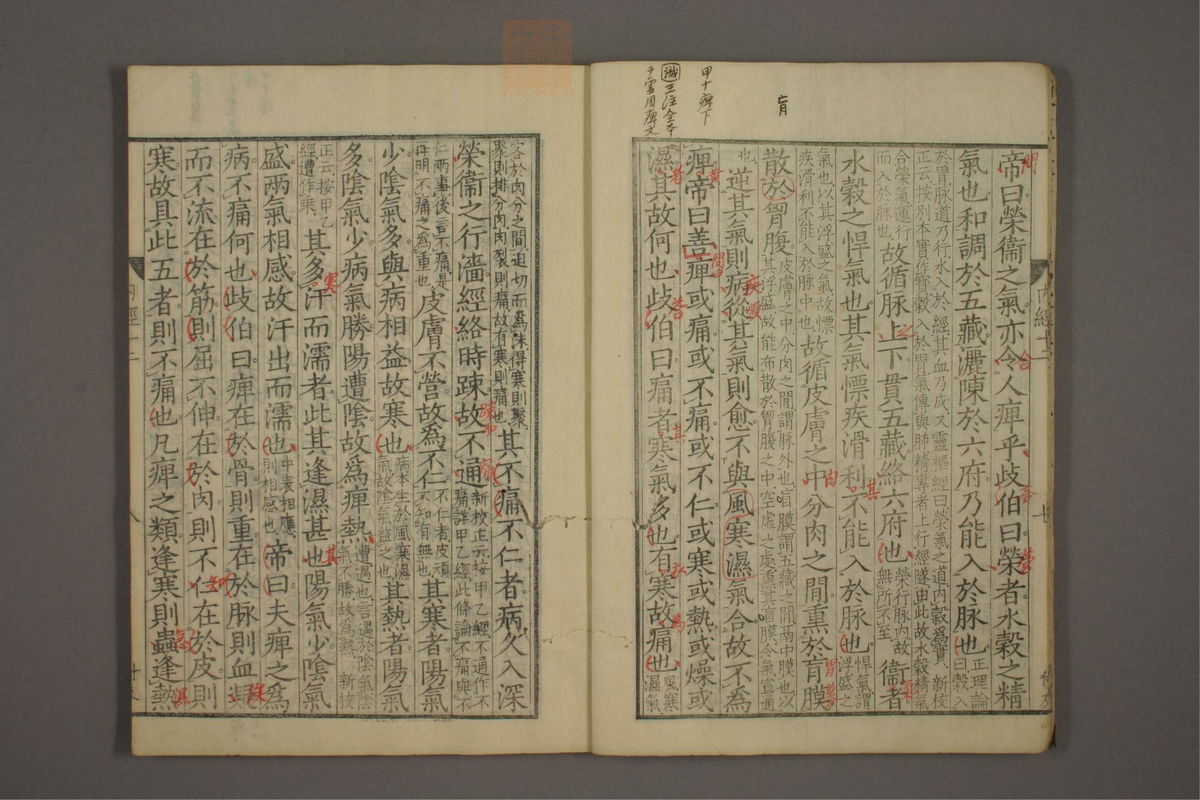 甲十痺下
肓
帝曰榮衞之氣亦令人痺乎歧伯曰榮者水穀之精
氣也和調於五藏灑陳於六府乃能入於脉也正理論曰穀入
於胃脉道乃行水入於經其血乃成又靈樞經曰榮氣之道内穀爲實 新校正云按別本實作寳穀入於胃氣傳與肺精專者上行經隧由此故水穀精氣
合榮氣運行而入於脉也故循脉上下貫五藏絡六府也榮行脉内故無所不至衞者
水穀之悍氣也其氣慓疾滑利不能入於脉也悍氣謂浮盛之
氣也以其浮盛之氣故慓疾滑利不能入於脉中也故循皮膚之中分肉之間熏於肓膜
散於胷腹皮膚之中分肉之間謂脉外也肓膜謂五藏之間鬲中膜也以其浮盛故能布散於胷腹之中空虚之處熏其肓膜令氣宣通
也逆其氣則病從其氣則愈不與風寒濕氣合故不爲
痺帝曰善痺或痛或不痛或不仁或寒或熱或燥或
濕其故何也歧伯曰痛者寒氣多也有寒故痛也風寒濕氣
客於肉分之間迫切而爲沫得寒則聚聚則排分肉肉裂則痛故有寒則痛也其不痛不仁者病久入深
榮衞之行濇經絡時踈故不通新校正云按甲乙經不通作不痛詳甲乙經此條論不痛與不
仁兩事後言不痛是再明不痛之爲重也皮膚不營故爲不仁不仁者皮頑不知有無也其寒者陽氣
少陰氣多與病相益故寒也病本生於風寒濕氣故陰氣益之也其熱者陽氣
多陰氣少病氣勝陽遭陰故爲痺熱遭遇也言遇於陰氣陰氣不勝故爲熱 新校
正云按甲乙經遭作乘其多汗而濡者此其逢濕甚也陽氣少陰氣
盛兩氣相感故汗出而濡也中表相應則相感也帝曰夫痺之爲
病不痛何也歧伯曰痺在於骨則重在於脉則血凝
而不流在於筋則屈不伸在於肉則不仁在於皮則
寒故具此五者則不痛也凡痺之類逢寒則蟲逢熱